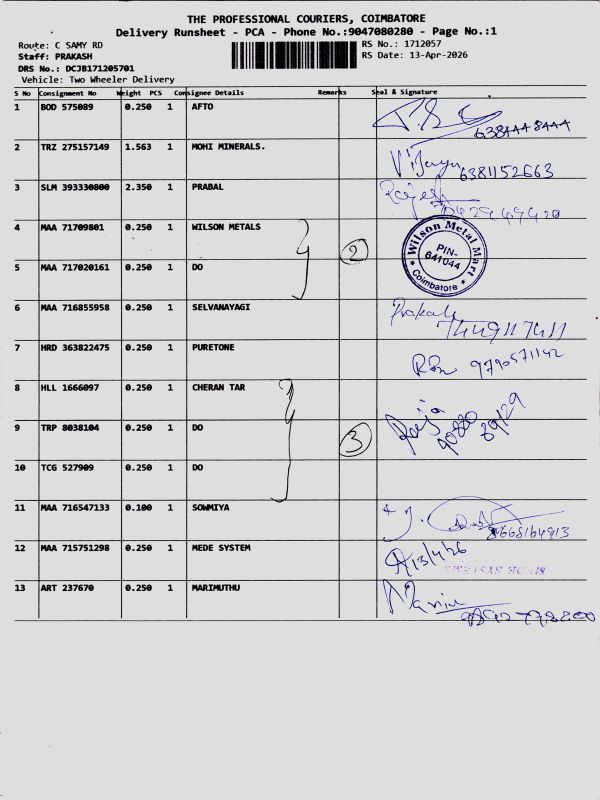 THE PROFESSIONAL COURIERS, COIMBATORE
Delivery Runsheet - PCA - Phone No.:9047080280 - Page No.:1
Route: C SAMY RD
RS No.: 1712057
Staff: PRAKASH
RS Date: 13-Apr-2026
DRS No.: DCJB171205701
Vehicle: Two Wheeler Delivery
S No Consignment No Weight PCS Consignee Details Remarks Seal & Signature
1 BOD 575089 0.250 1 AFTO
2 TRZ 275157149 1.563 1 MOHI MINERALS. Vijaya 6381152663
3 SLM 393330800 2.350 1 PRABAL Rajesh
4 MAA 71709801 0.250 1 WILSON METALS 2 Wilson Metal Mart PIN-641044 Coimbatore
5 MAA 717020161 0.250 1 DO
6 MAA 716855958 0.250 1 SELVANAYAGI Prakash
7 HRD 363822475 0.250 1 PURETONE 9790571142
8 HLL 1666097 0.250 1 CHERAN TAR
9 TRP 8038104 0.250 1 DO 3 Raja 90880 89129
10 TCG 527909 0.250 1 DO
11 MAA 716547133 0.100 1 SOWMIYA 8668164913
12 MAA 715751298 0.250 1 MEDE SYSTEM 13/4/26
13 ART 237670 0.250 1 MARIMUTHU